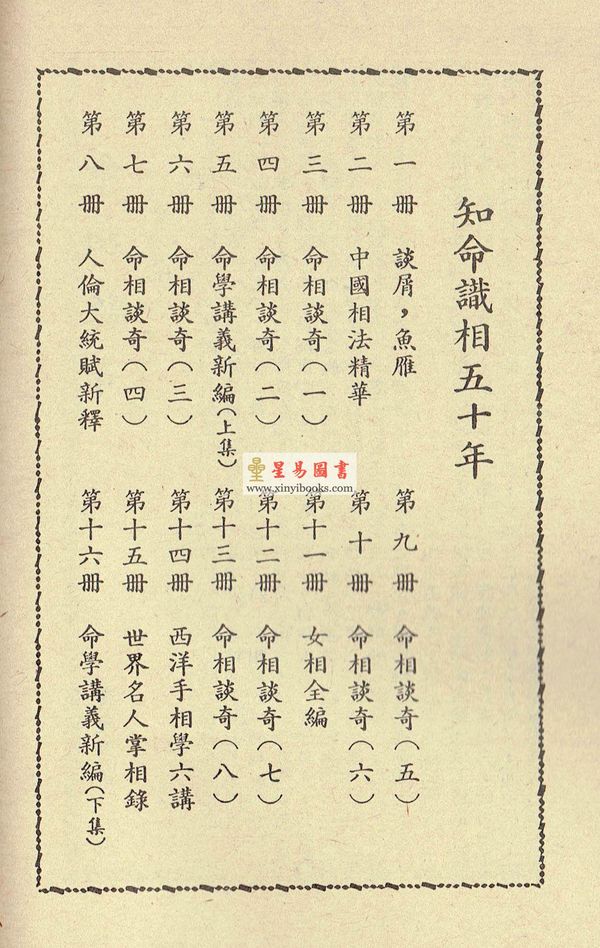 知命識相五十年
第一冊 談屑，魚雁
第二冊 中國相法精華
第三冊 命相談奇(一)
第四冊 命相談奇(二)
第五冊 命學講義新編(上集)
第六冊 命相談奇(三)
第七冊 命相談奇(四)
第八冊 人倫大統賦新釋
第九冊 命相談奇(五)
第十冊 命相談奇(六)
第十一冊 女相全編
第十二冊 命相談奇(七)
第十三冊 命相談奇(八)
第十四冊 西洋手相學六講
第十五冊 世界名人掌相錄
第十六冊 命學講義新編(下集)
星易圖書
www.xinyibooks.com